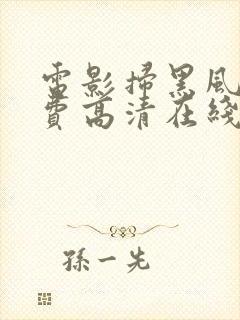 電影掃黑風
費高清在綫
孫一先